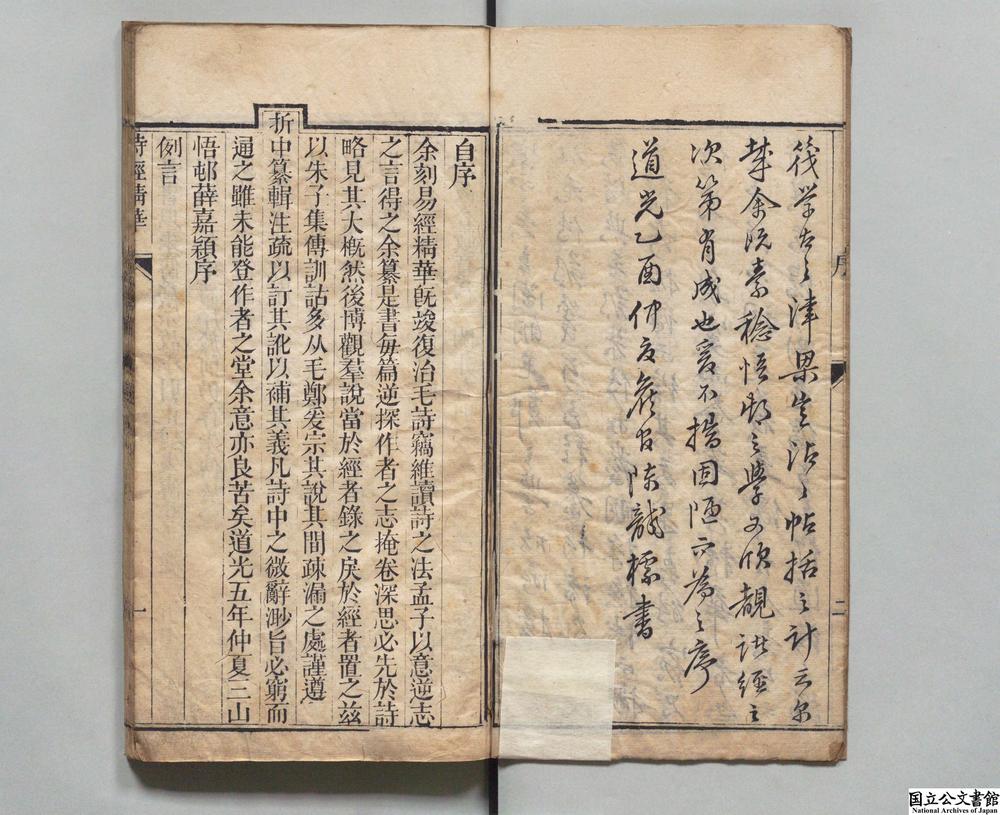 筏學古之津梁豈沾沾帖括之計云尔
哉余既素稔悟邨之學又欣覩諸經之
次第肖成也爰不揣固陋而為之序
道光乙酉仲夏 陳龍標書
序
二
自序
余刻易經精華旣竣復治毛詩竊維讀詩之法孟子以意逆志
之言得之余纂是書每篇逆探作者之志掩卷深思必先於詩
略見其大槪然後博觀羣說當於經者錄之戾於經者置之玆
以朱子集傳訓詁多从毛鄭爰宗其說其間疎漏之處謹遵
折中纂輯注疏以訂其訛以補其義凡詩中之微辭渺旨必窮而
通之雖未能登作者之堂余意亦良苦矣道光五年仲夏二山
悟邨薛嘉穎序
例言
詩經精華
一
国立公文書館
National Archives of Japan